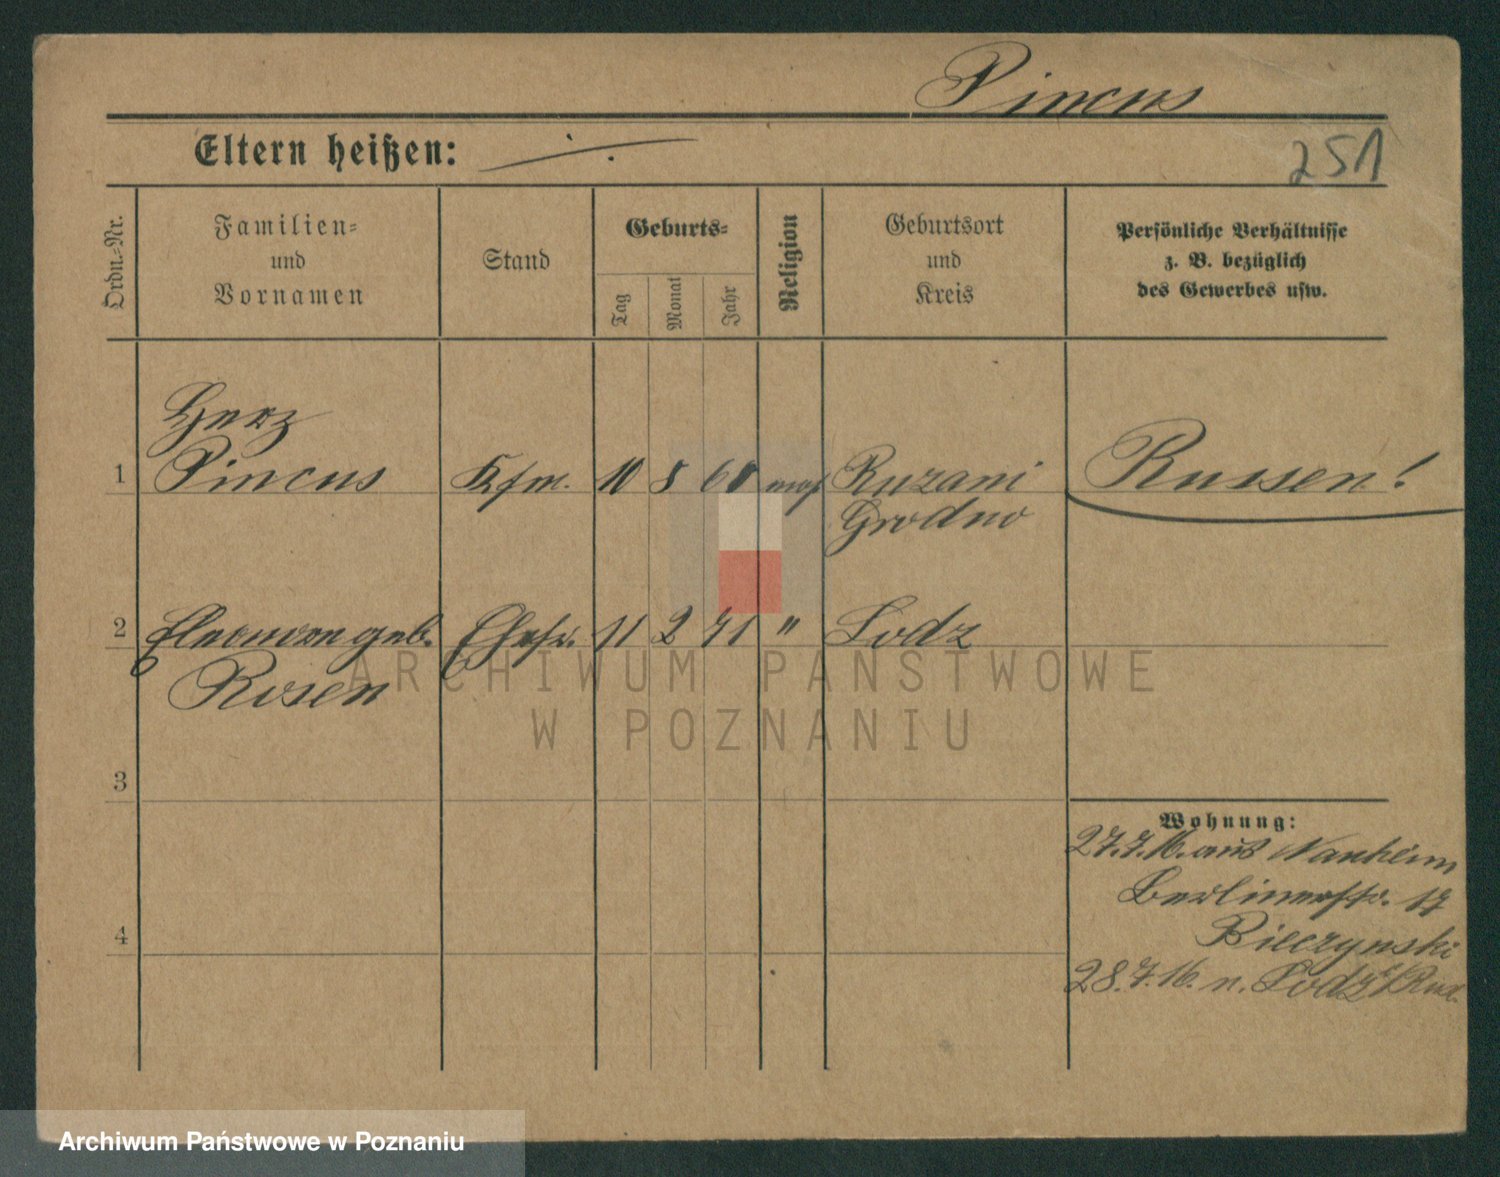 Pincus
251
Eltern heißen: ·/.
Ordn.-Nr.
Familien-
und
Vornamen
Stand
Geburts-
Tag
Monat
Jahr
Religion
Geburtsort
und
Kreis
Persönliche Verhältnisse
z. B. bezüglich
des Gewerbes usw.
Herz
1 Pincus Kfm. 10 8 68 mos Ruzani Russen!
Grodno
2 geb. Ehefr. 11 2 71 " Lodz
Rosen
3
Wohnung:
27.7.16. aus Nauheim
Berlinerstr. 17
4 Bieczynski
28.7.16. n. Lodz
ARCHIWUM PAŃSTWOWE
W POZNANIU
Archiwum Państwowe w Poznaniu